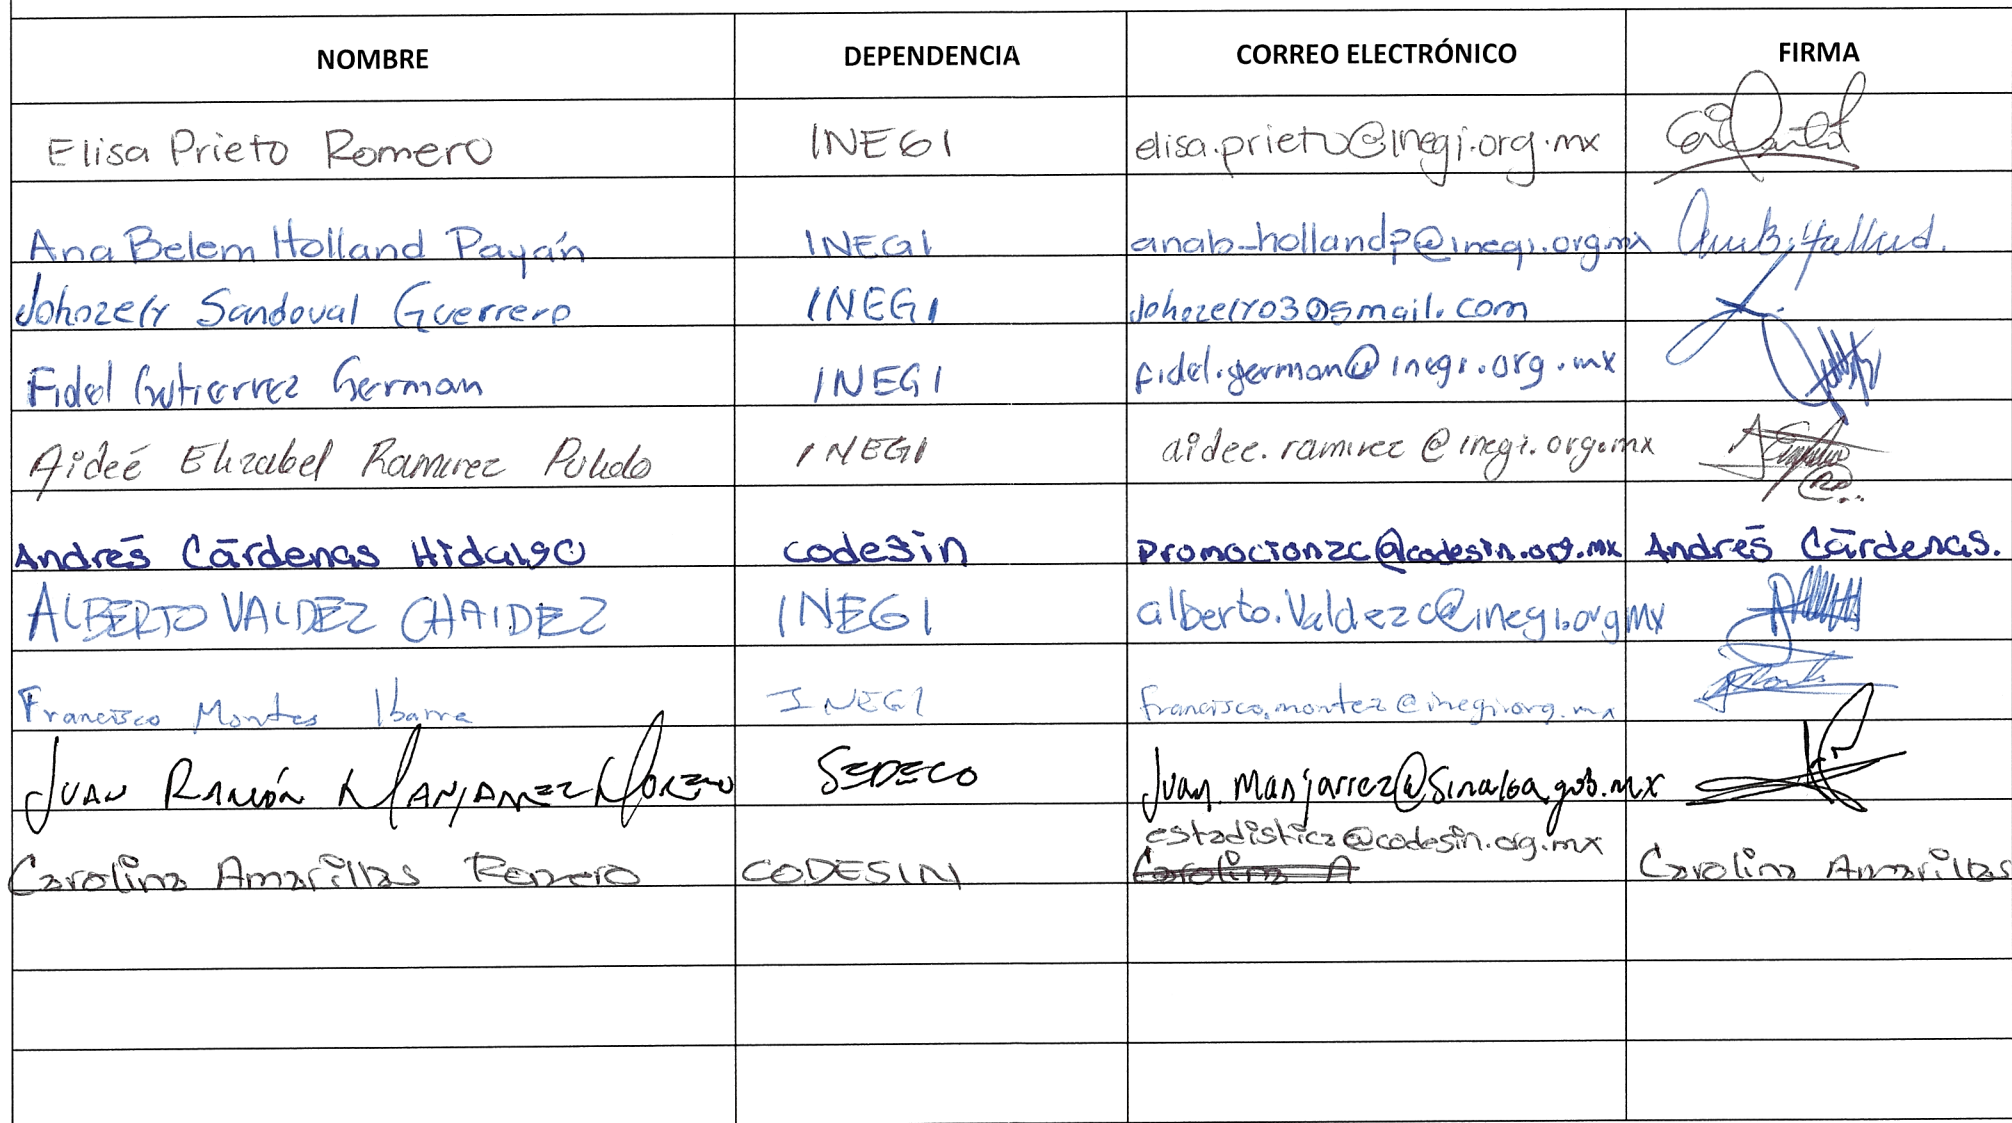 NOMBRE DEPENDENCIA CORREO ELECTRÓNICO FIRMA
Elisa Prieto Romero INEGI elisa.prieto@inegi.org.mx
Ana Belem Holland Payán INEGI anab_hollandp@inegi.org.mx
Johozely Sandoval Guerrero INEGI Johozely03@gmail.com
Fidel Gutierrez German INEGI fidel.german@inegi.org.mx
Aideé Elizabel Ramirez Pulido INEGI aidee.ramirez@inegi.org.mx
Andrés Cárdenas Hidalgo codesin promocionzc@codesin.org.mx Andrés Cárdenas.
ALBERTO VALDEZ CHAIDEZ INEGI alberto.Valdezc@inegi.org.mx
Francisco Montes Ibarra INEGI francisco.montez@inegi.org.mx
JUAN RAMÓN MANJARREZ MORENO SEDECO Juan.manjarrez@sinaloa.gob.mx
estadistica@codesin.org.mx
Carolina Amarillas Romero CODESIN Carolina A Carolina Amarillas